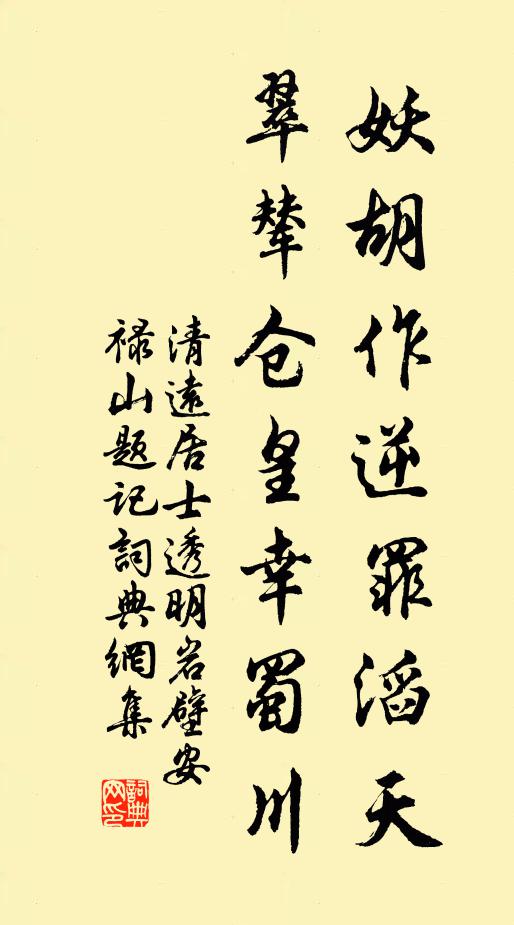 妖胡作逆罪滔天
翠辇仓皇幸蜀川
清遠居士透明岩壁安
禄山题记詞典網集
詞典网印